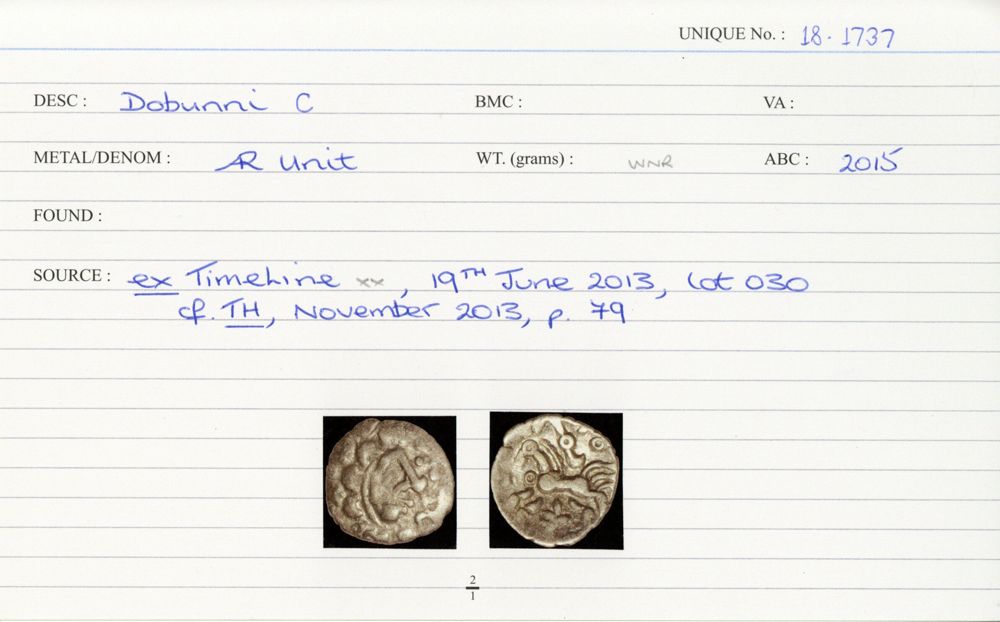 UNIQUE No. : 18.1737
DESC : Dobunni C BMC : VA :
METAL/DENOM : AR Unit WT. (grams) : WNR ABC : 2015
FOUND :
SOURCE : ex Timeline xx, 19TH June 2013, Lot 030
cf. TH, November 2013, p. 79
2
1